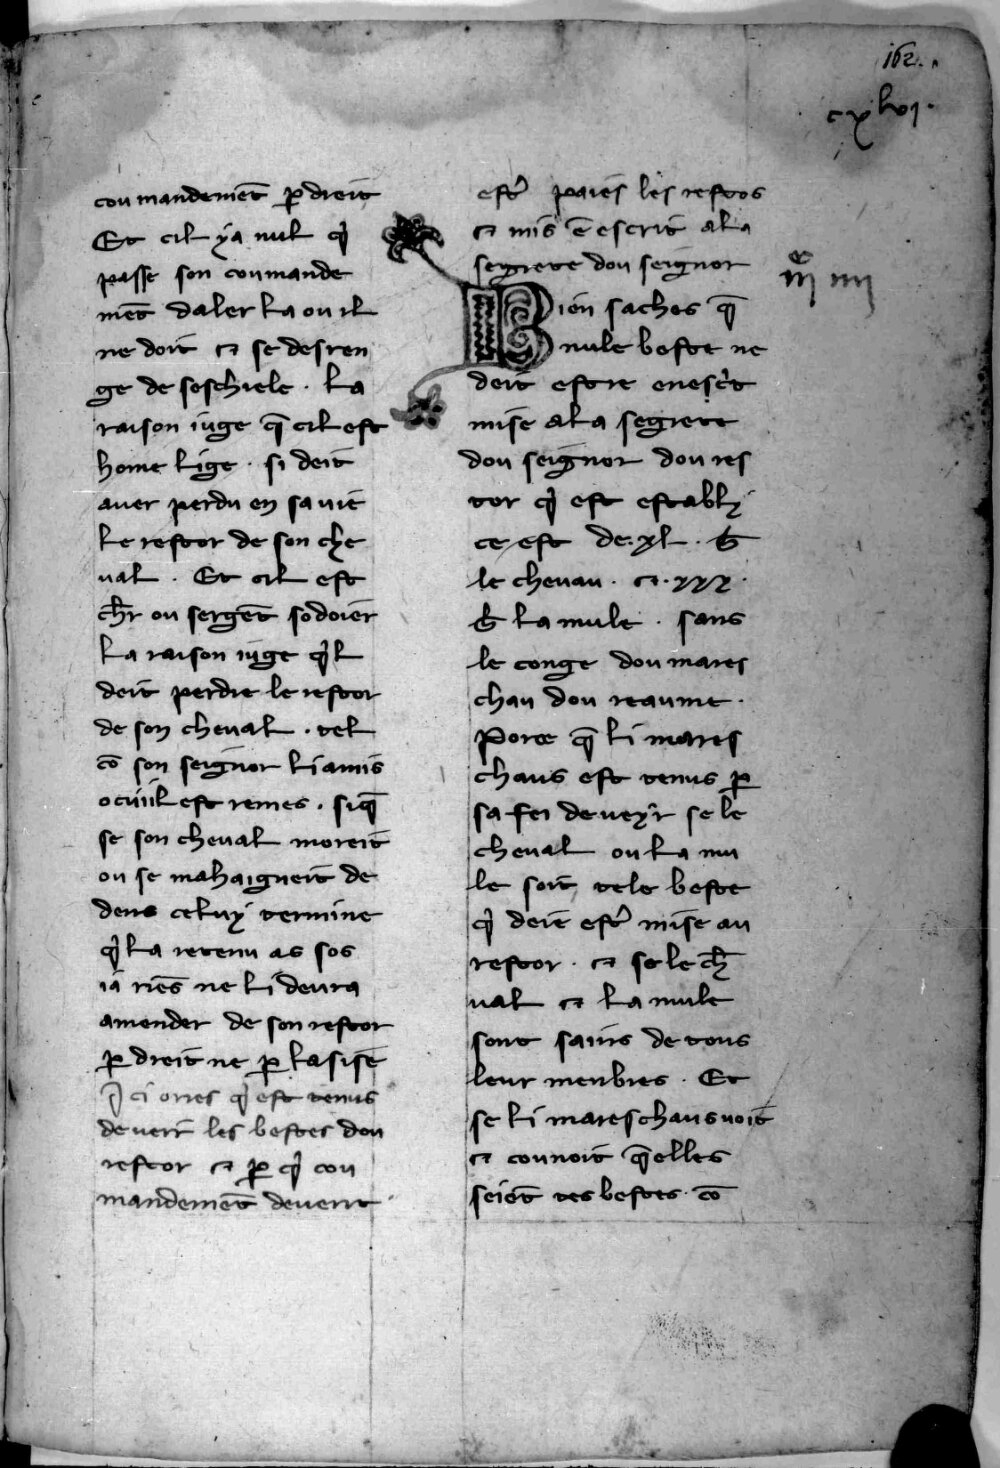 162.
cxlvj.
coumandemēt ꝑ dreit
Et cil ya nul q̇
passe son coumande
mēt daler la ou il
ne doit ⁊ se desren
ge de seschiele . la
raison iuge q̄ cil est
home lige . si deit
auer perdu en sa uie
le restor de son che
ual . Et cil est
ch̅r ou sergēt sodoier
la raison iuge q̇l
deit perdre le restor
de son cheual . tel
cō son seignor li amis
o cuiil est remes . si q̄
se son cheual moreit
ou se mahaigneit de
dens celuy termine
q̇ la retenu as sos
ia riēs ne li deura
amender de son restor
ꝑ dreit ne ꝑ lasise
I ci ores q̇ est tenus
de uerr les bestes dou
restor ⁊ ꝑ q̇ cou
mandemēt deuent
estr̄ paies les restos
⁊ mis ē escrit a la
segrete dou seignor
Bien saches q̄
nule beste ne
deit estre en escrit
mise a la segrete
dou seignor dou res
tor q̇ est estably
ce est de .xl . b̄
le cheuau . ⁊ . xxx .
b̄ la mule . sans
le conge dou mares
chau dou reaume .
Porce q̄ li mares
chaus est tenus ꝑ
sa fei de veyr se le
cheual ou la mu
le soit tele beste
q̇ deie estr̄ mise au
restor . ⁊ se le ch̄
ual ⁊ la mule
sont sains de tous
leur menbres . Et
se li mareschaus uoit
⁊ counoit q̄ elles
seiōt tes bestes . cō